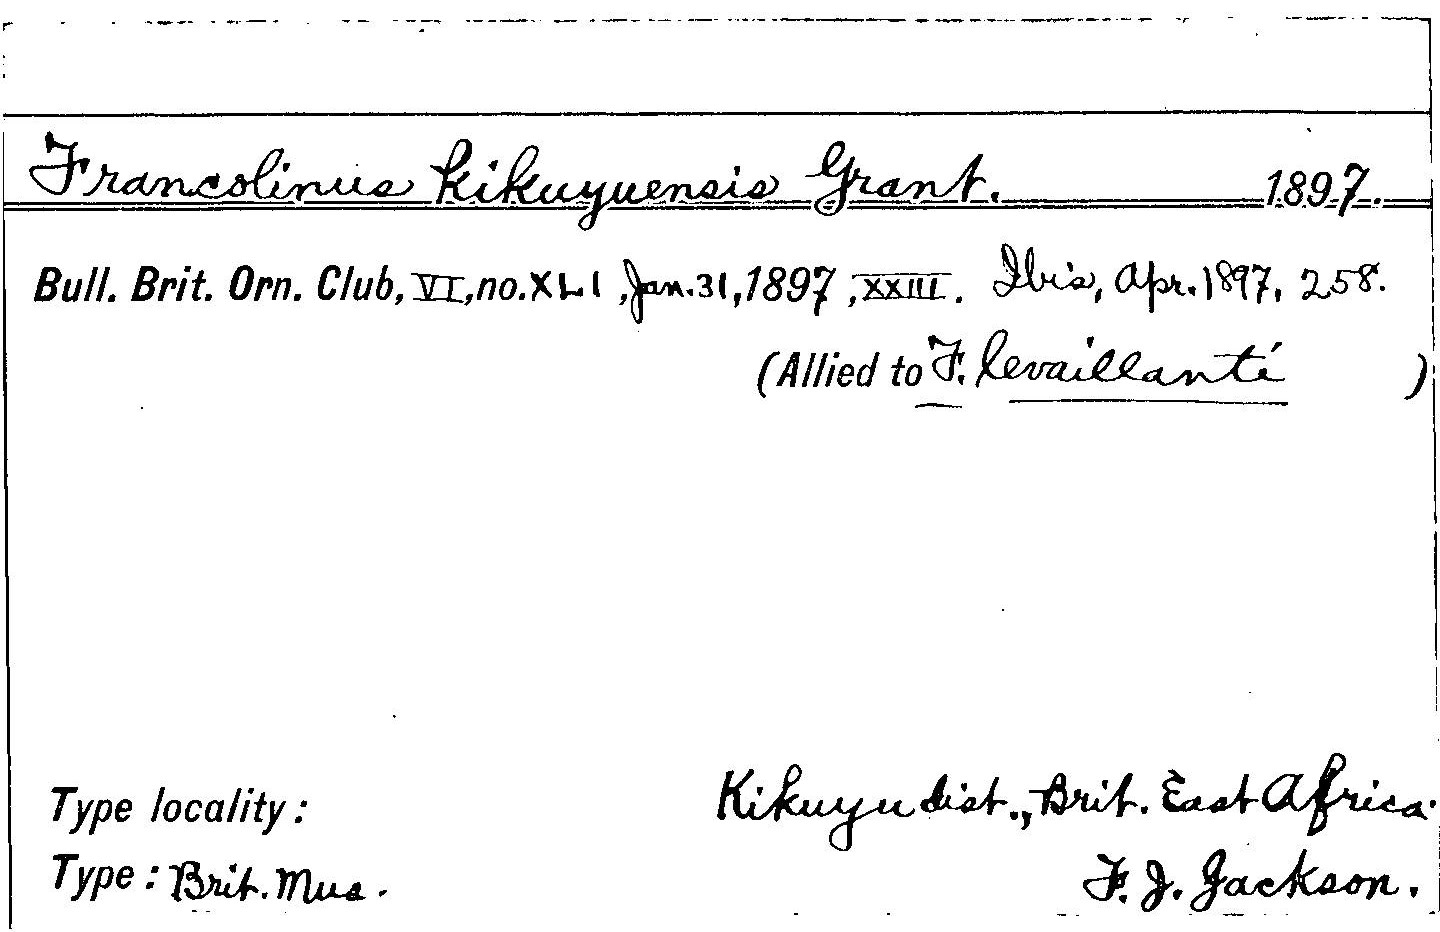 Francolinus kikuyuensis Grant. 1897.
Bull. Brit. Orn. Club, VI, no. XLI, Jan. 31, 1897, XXIII. Ibis, Apr. 1897, 258.
(Allied to F. levaillanti )
Type locality: Kikuyu dist., Brit. East Africa.
Type: Brit. Mus. F. J. Jackson.